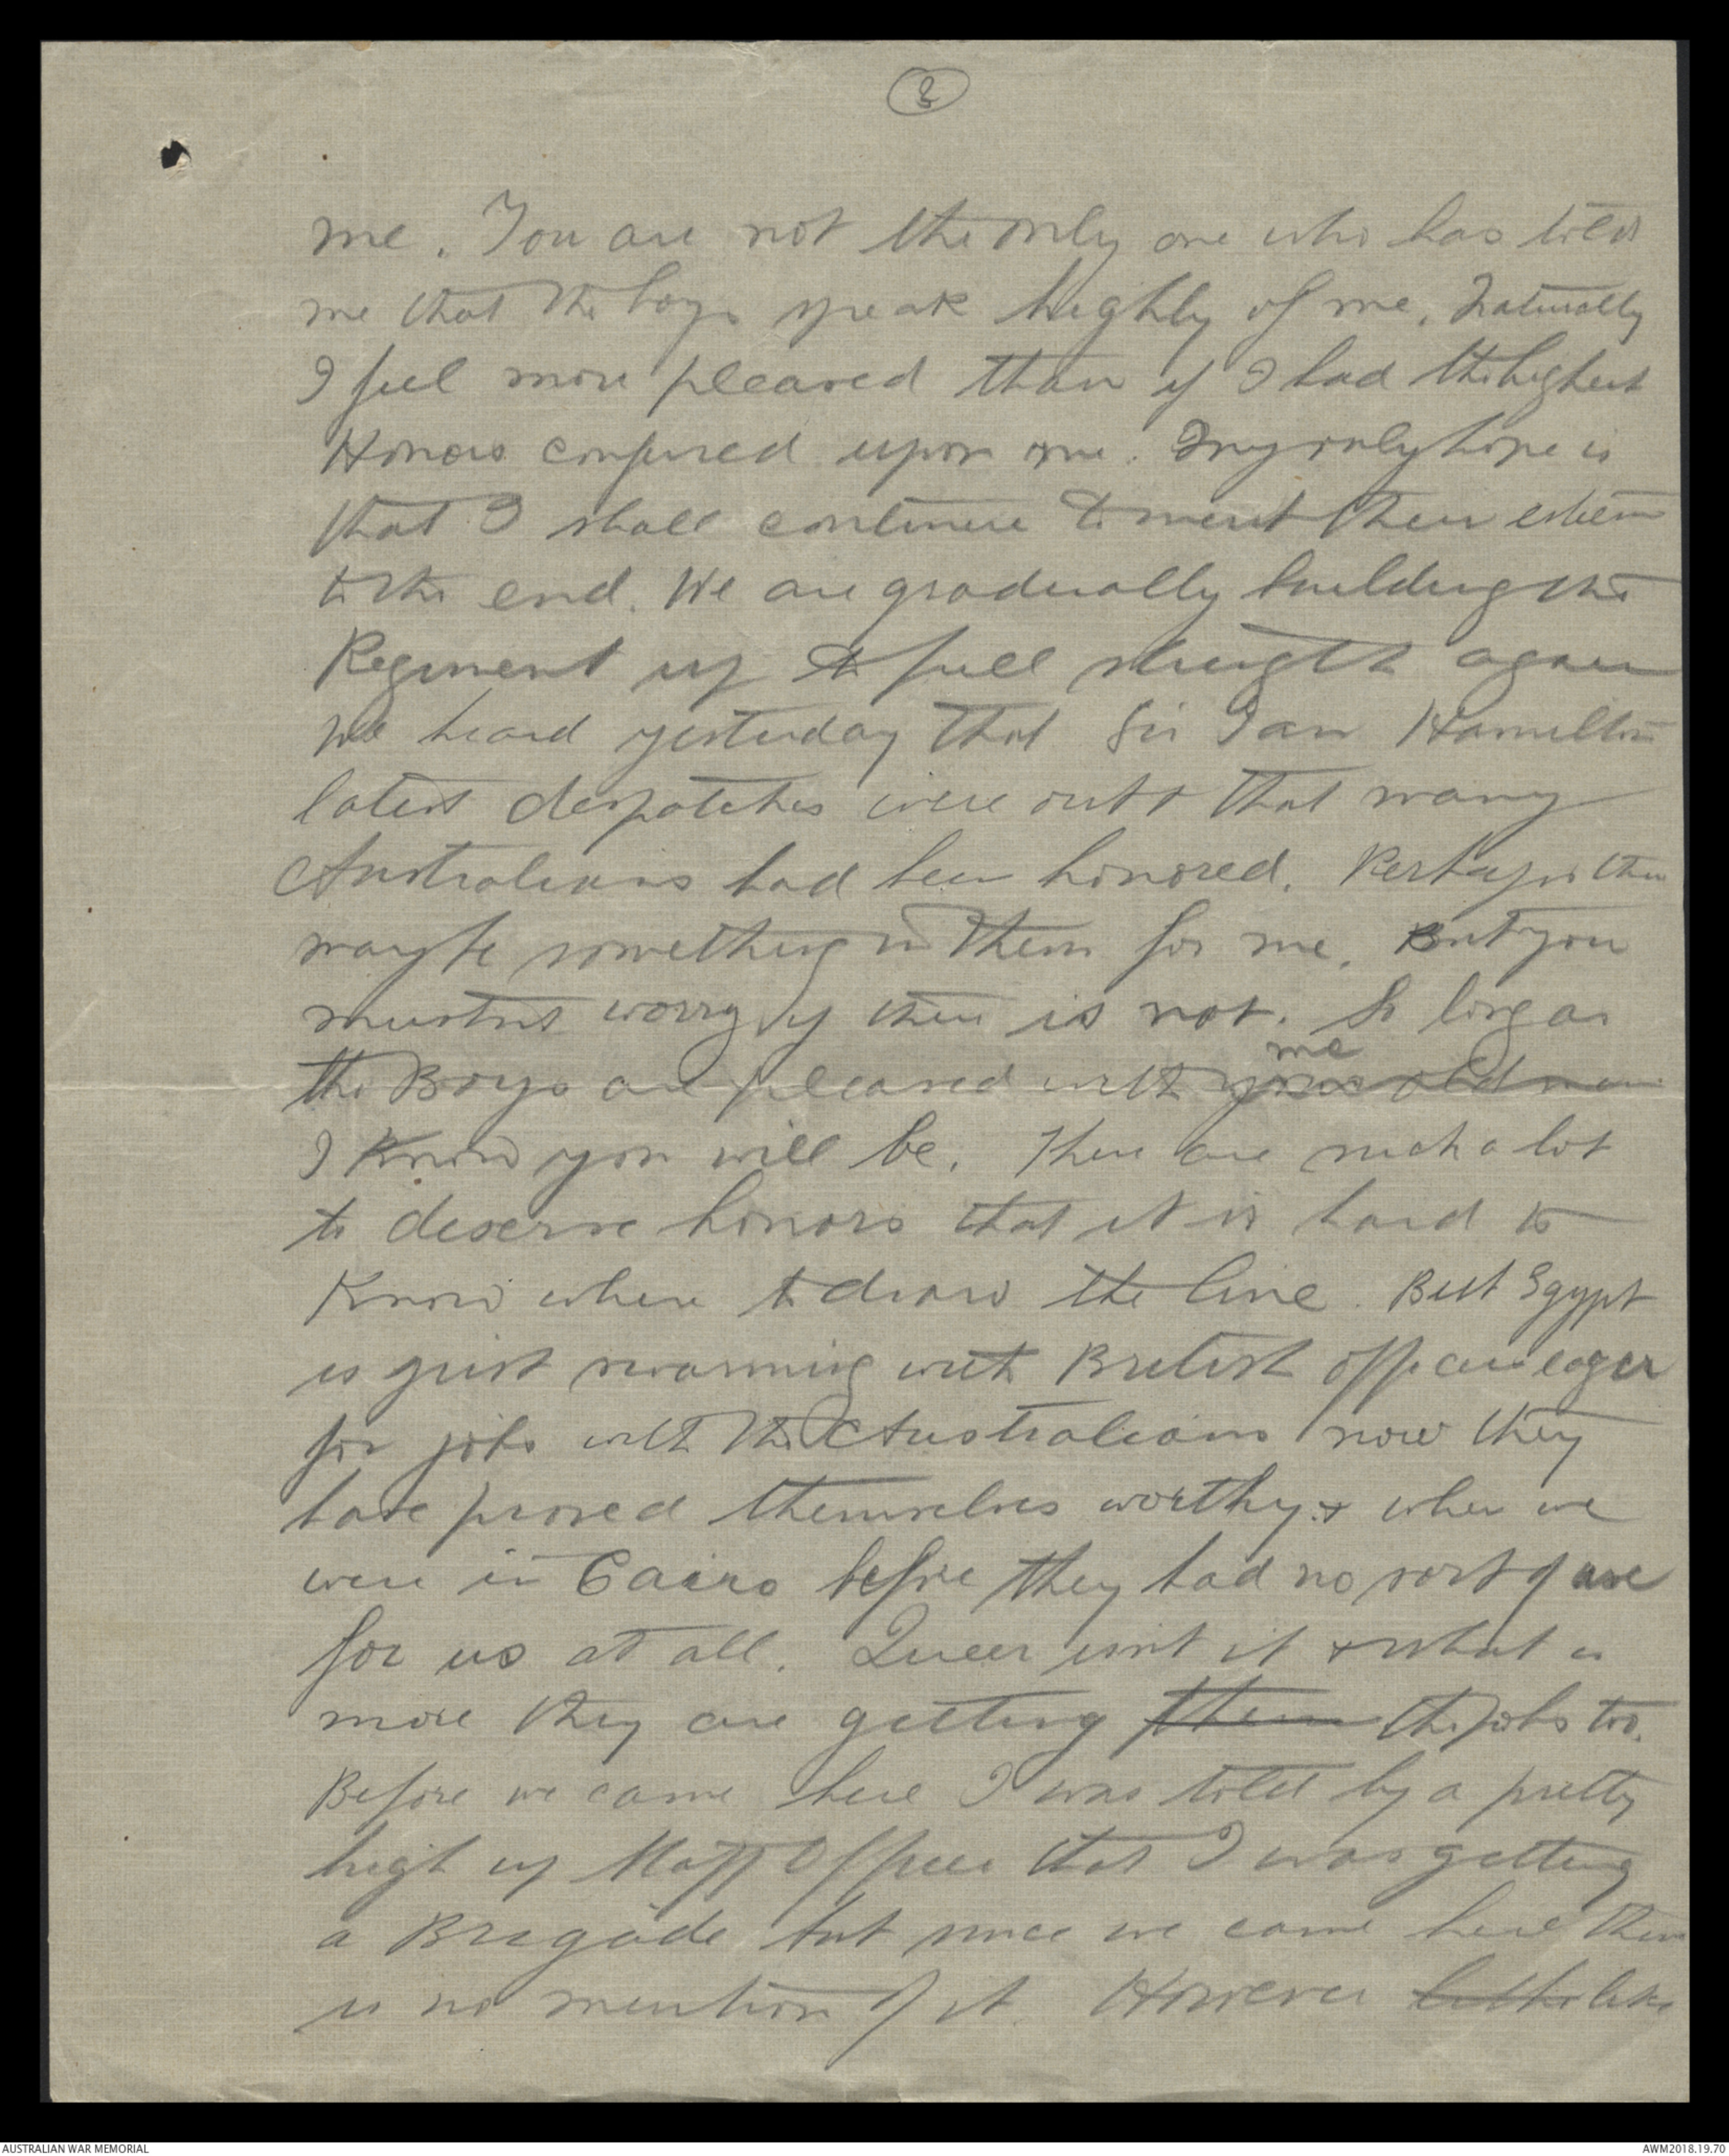 3
me. You are not the only one who has told
me that the boys speak highly of me. Naturally
I feel more pleased than if I had the highest
Honors confured upon me. My only hope is
that I shall continue to merit their esteem
to the end. We are gradually building the
Regiment up to full strength again
We heard yesterday that Sir Ian Hamilton
latest despatches were out & that many
Australians had been honored. Perhaps there
maybe something in them for me. But you
mustnt worry if there is not. So long as
me
the Boys are pleased with your old man
I know you will be. There are such a lot
to deserve honors that it is hard to
Know where to draw the line. But Egypt
is just swarming with British officers eager
for jobs with the Australians now they
have proved themselves worthy & when we
were in Cairo before they had no sort of use
for us at all. Queer isnt it & what is
more they are getting them the jobs too.
Before we came here I was told by a pretty
high up Staff Officer that I was getting
a Brigade but since we came here there
is no mention of it. However
AUSTRALIAN WAR MEMORIAL
AWM2018.19.70